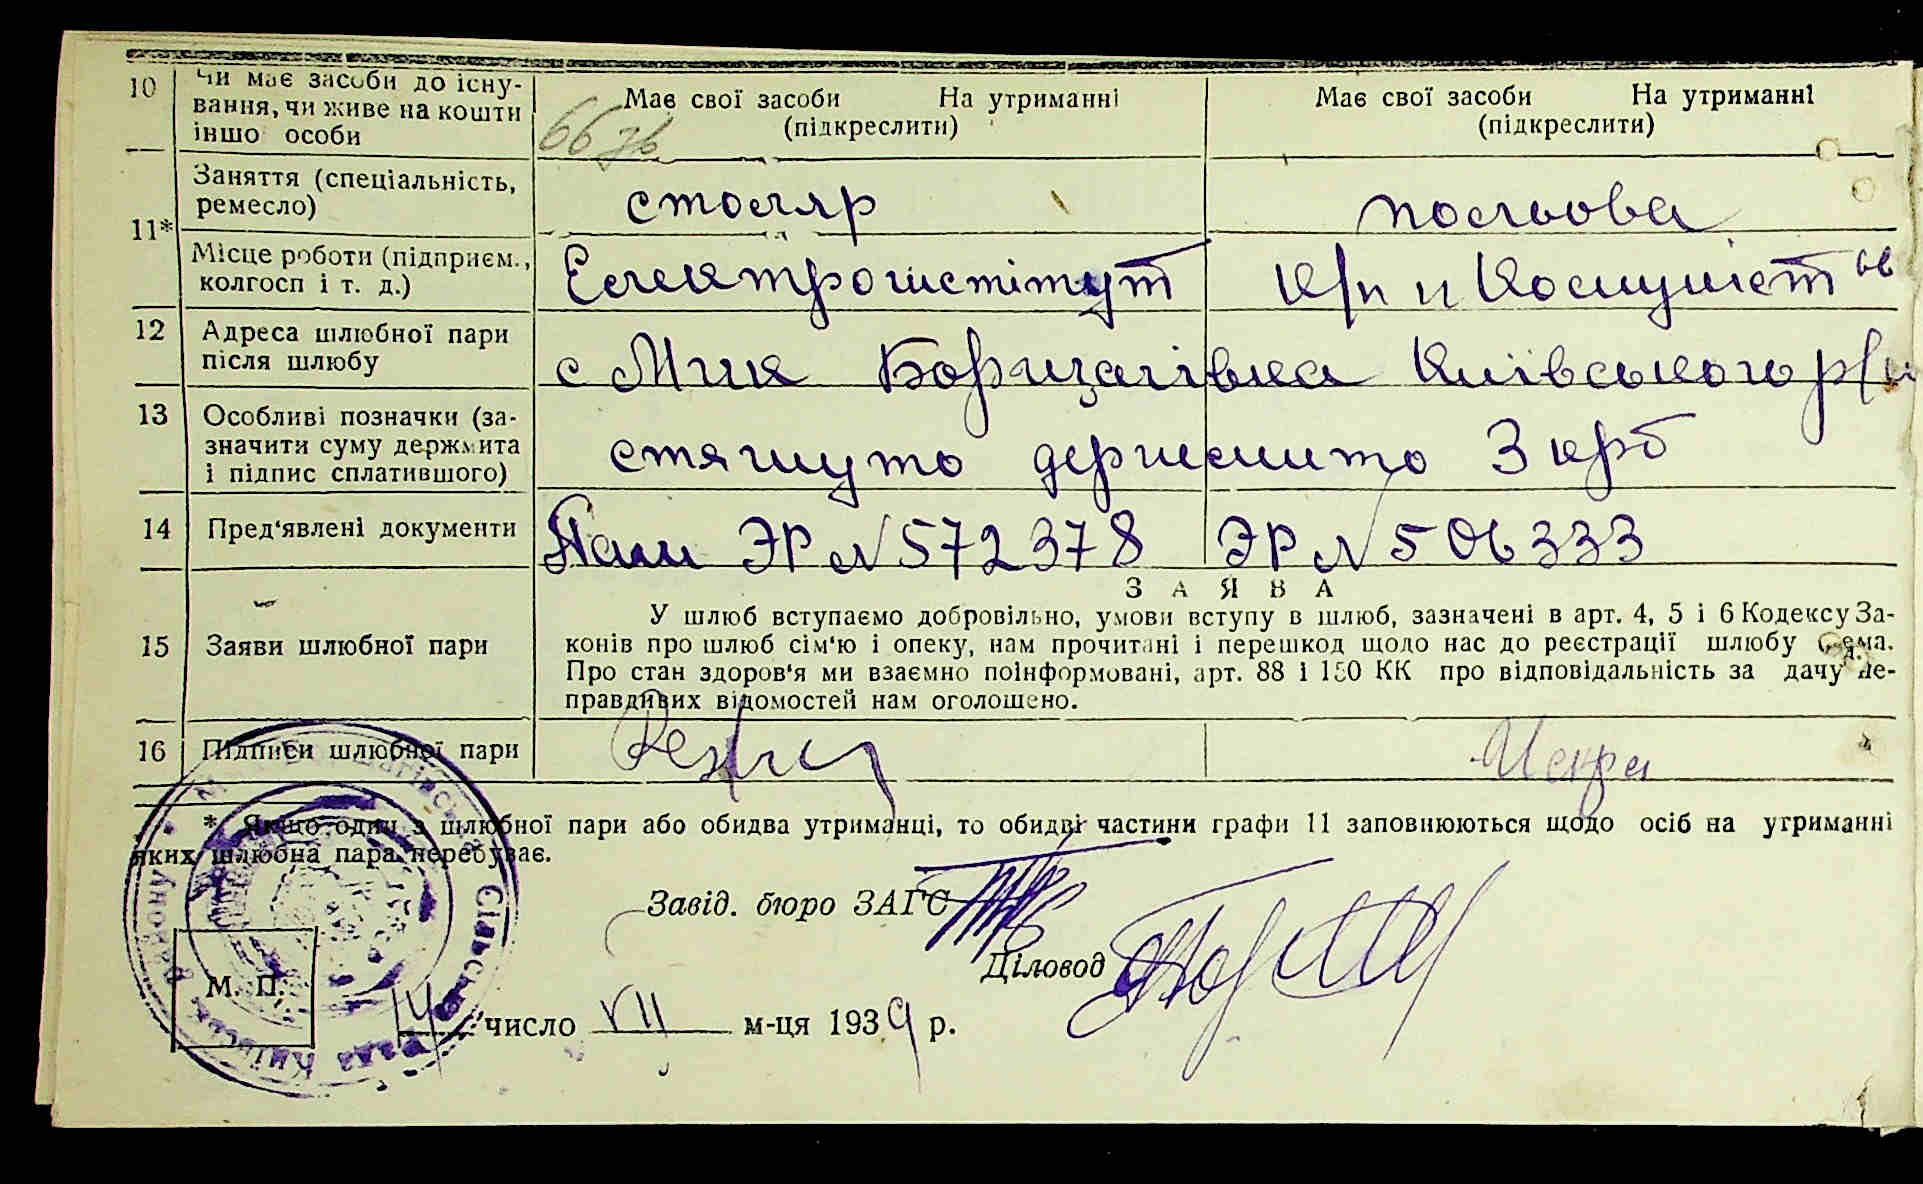 10 Чи має засоби до існу-
вання, чи живе на кошти
іншо особи
Має свої засоби На утриманні
(підкреслити)
Має свої засоби На утриманні
(підкреслити)
66 зв
11* Заняття (спеціальність,
ремесло)
столяр
польова
Місце роботи (підприєм.,
колгосп і т. д.)
Електроінстітут
к/п и Комуніст
12 Адреса шлюбної пари
після шлюбу
с Мик Борщагівка Київського р/н
13 Особливі позначки (за-
значити суму держмита
і підпис сплатившого)
стягнуто держмито 3 крб
14 Пред'явлені документи
Паш ЭР № 572378 ЭР № 506333
15 Заяви шлюбної пари
ЗАЯВА
У шлюб вступаємо добровільно, умови вступу в шлюб, зазначені в арт. 4, 5 і 6 Кодексу За-
конів про шлюб сім'ю і опеку, нам прочитані і перешкод щодо нас до реєстрації шлюбу нема.
Про стан здоров'я ми взаємно поінформовані, арт. 88 і 150 КК про відповідальність за дачу не-
правдивих відомостей нам оголошено.
16 Підписи шлюбної пари
Искра
* Якщо один з шлюбної пари або обидва утриманці, то обидві частини графи 11 заповнюються щодо осіб на утриманні
яких шлюбна пара перебуває.
Завід. бюро ЗАГС
Діловод
М. П.
14 число VII м-ця 1939 р.
Сільська Рада Київськ району